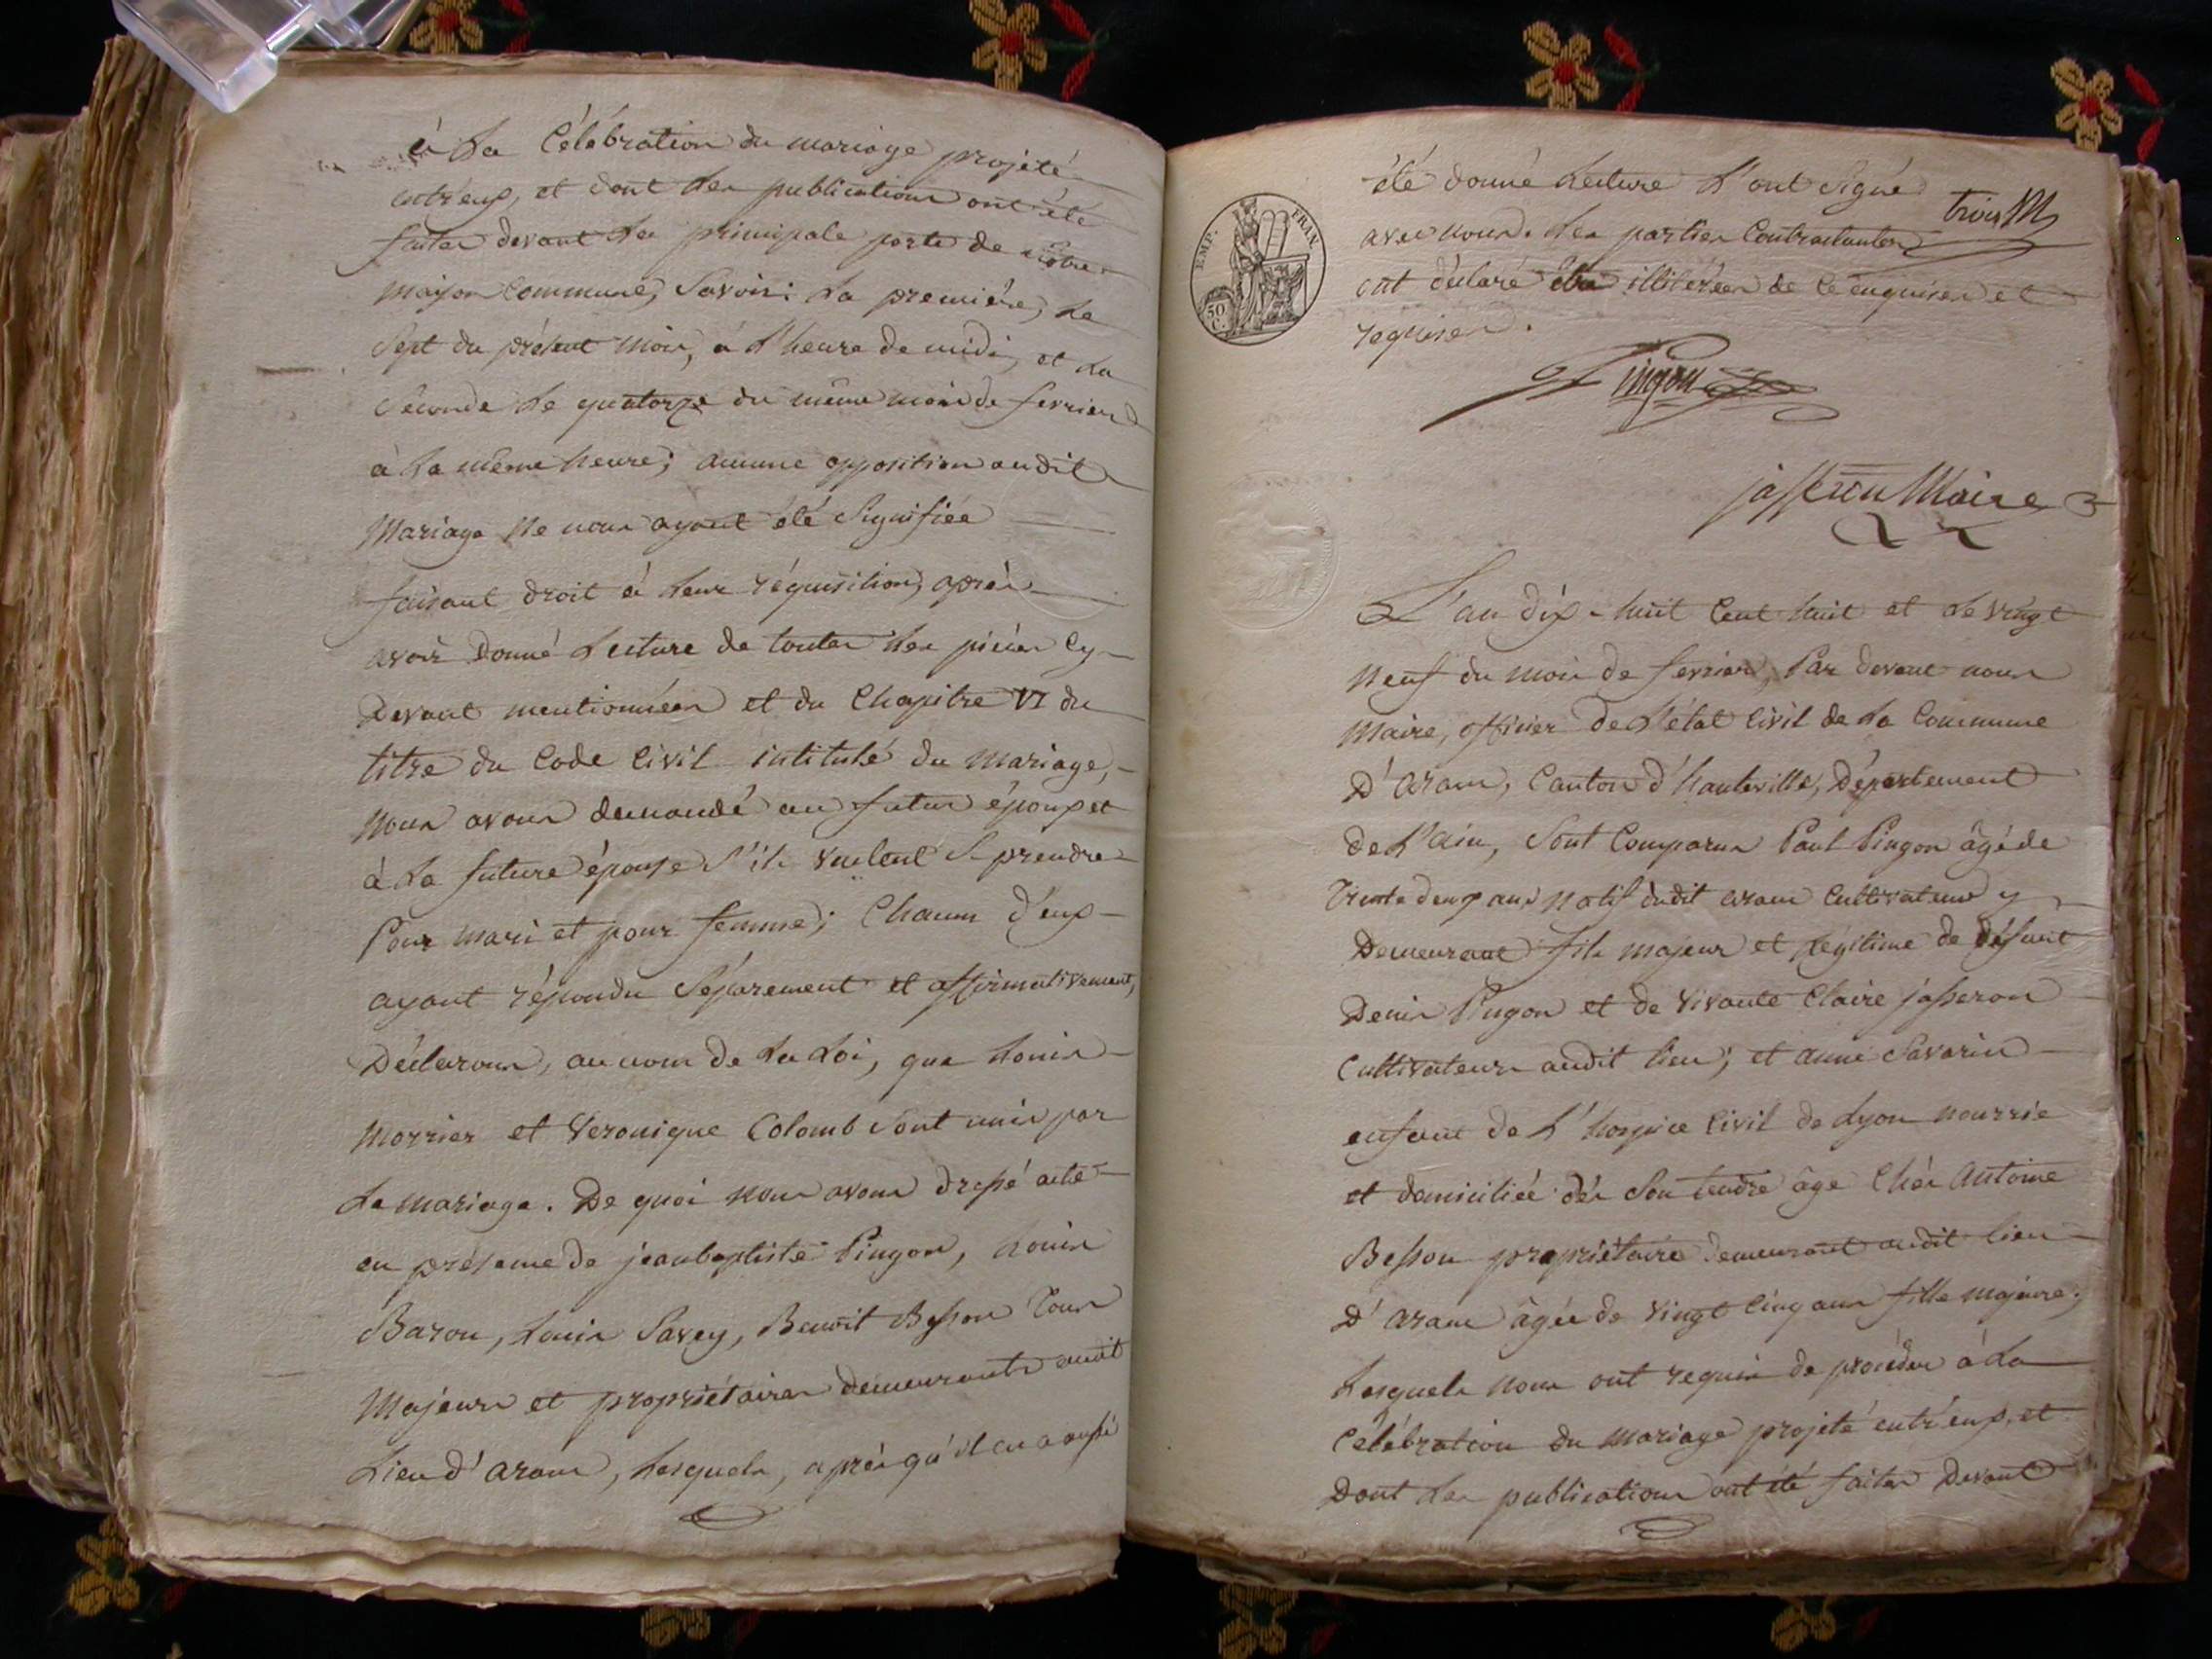 à La Célébration du mariage projeté
entr'eux, et dont Les publications ont été
faites devant La principale porte de notre
Maison Commune, Savoir: La première, Le
Sept du présent Mois, à L'heure de midi, et La
Seconde Le quatorze du même mois de fevrier
à La même heure; aucune opposition audit
Mariage Ne nous ayant été Signifiée
faisant droit à Leur réquisition, après
avoir Donné Lecture de toutes Les pièces Cy-
Devant mentionnées et du Chapitre VI du
titre du Code Civil intitulé du Mariage,
Nous avons demandé au futur époux et
à La future épouse S'ils veulent Se prendre
Pour Mari et pour femme; Chacun d'eux
ayant répondu Séparement et affirmativement,
Déclarons, au nom de La Loi, que Louis
Morrier et Veronique Colomb Sont unis par
Le mariage. De quoi Nous avons dressé acte
en présence de jeanbaptiste Pingon, Louis
Baron, Louis Savey, Benoit Besson Tous
Majeurs et propriétaires demeurants audit
Lieu d'aranc, Lesquels, après qu'il en a aussi
été donné Lecture L'ont Signé
trois
avec nous. Les parties Contractantes
ont déclaré être illitérées de Ce enquises et
requises.
Pingon
jasseron Maire
EMP. FRAN.
50 C.
L'an dix-huit Cent huit et Le vingt
Neuf du mois de fevrier, Par devant nous
Maire, officier de L'état Civil de La Commune
D'aranc, Canton d'hauteville, Département
de L'ain, Sont Comparus Paul Pingon âgé de
Trente deux ans Natif dudit aranc Cultivateur y
Demeurant fils majeur et Légitime de défunt
Denis Pingon et de vivante Claire jasseron
Cultivateurs audit lieu; et anne Savarin
enfant de L'hospice Civil de Lyon nourrie
et domiciliée dès Son tendre âge Chés Antoine
Besson propriétaire demeurant audit lieu
D'aranc âgée de vingt Cinq ans fille majeure;
Lesquels nous ont requis de procéder à La
Célébration du Mariage projeté entr'eux, et
Dont Les publications ont été faites Devant